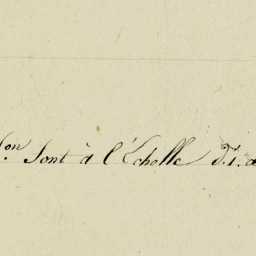 on sont à l'Echelle d.1.